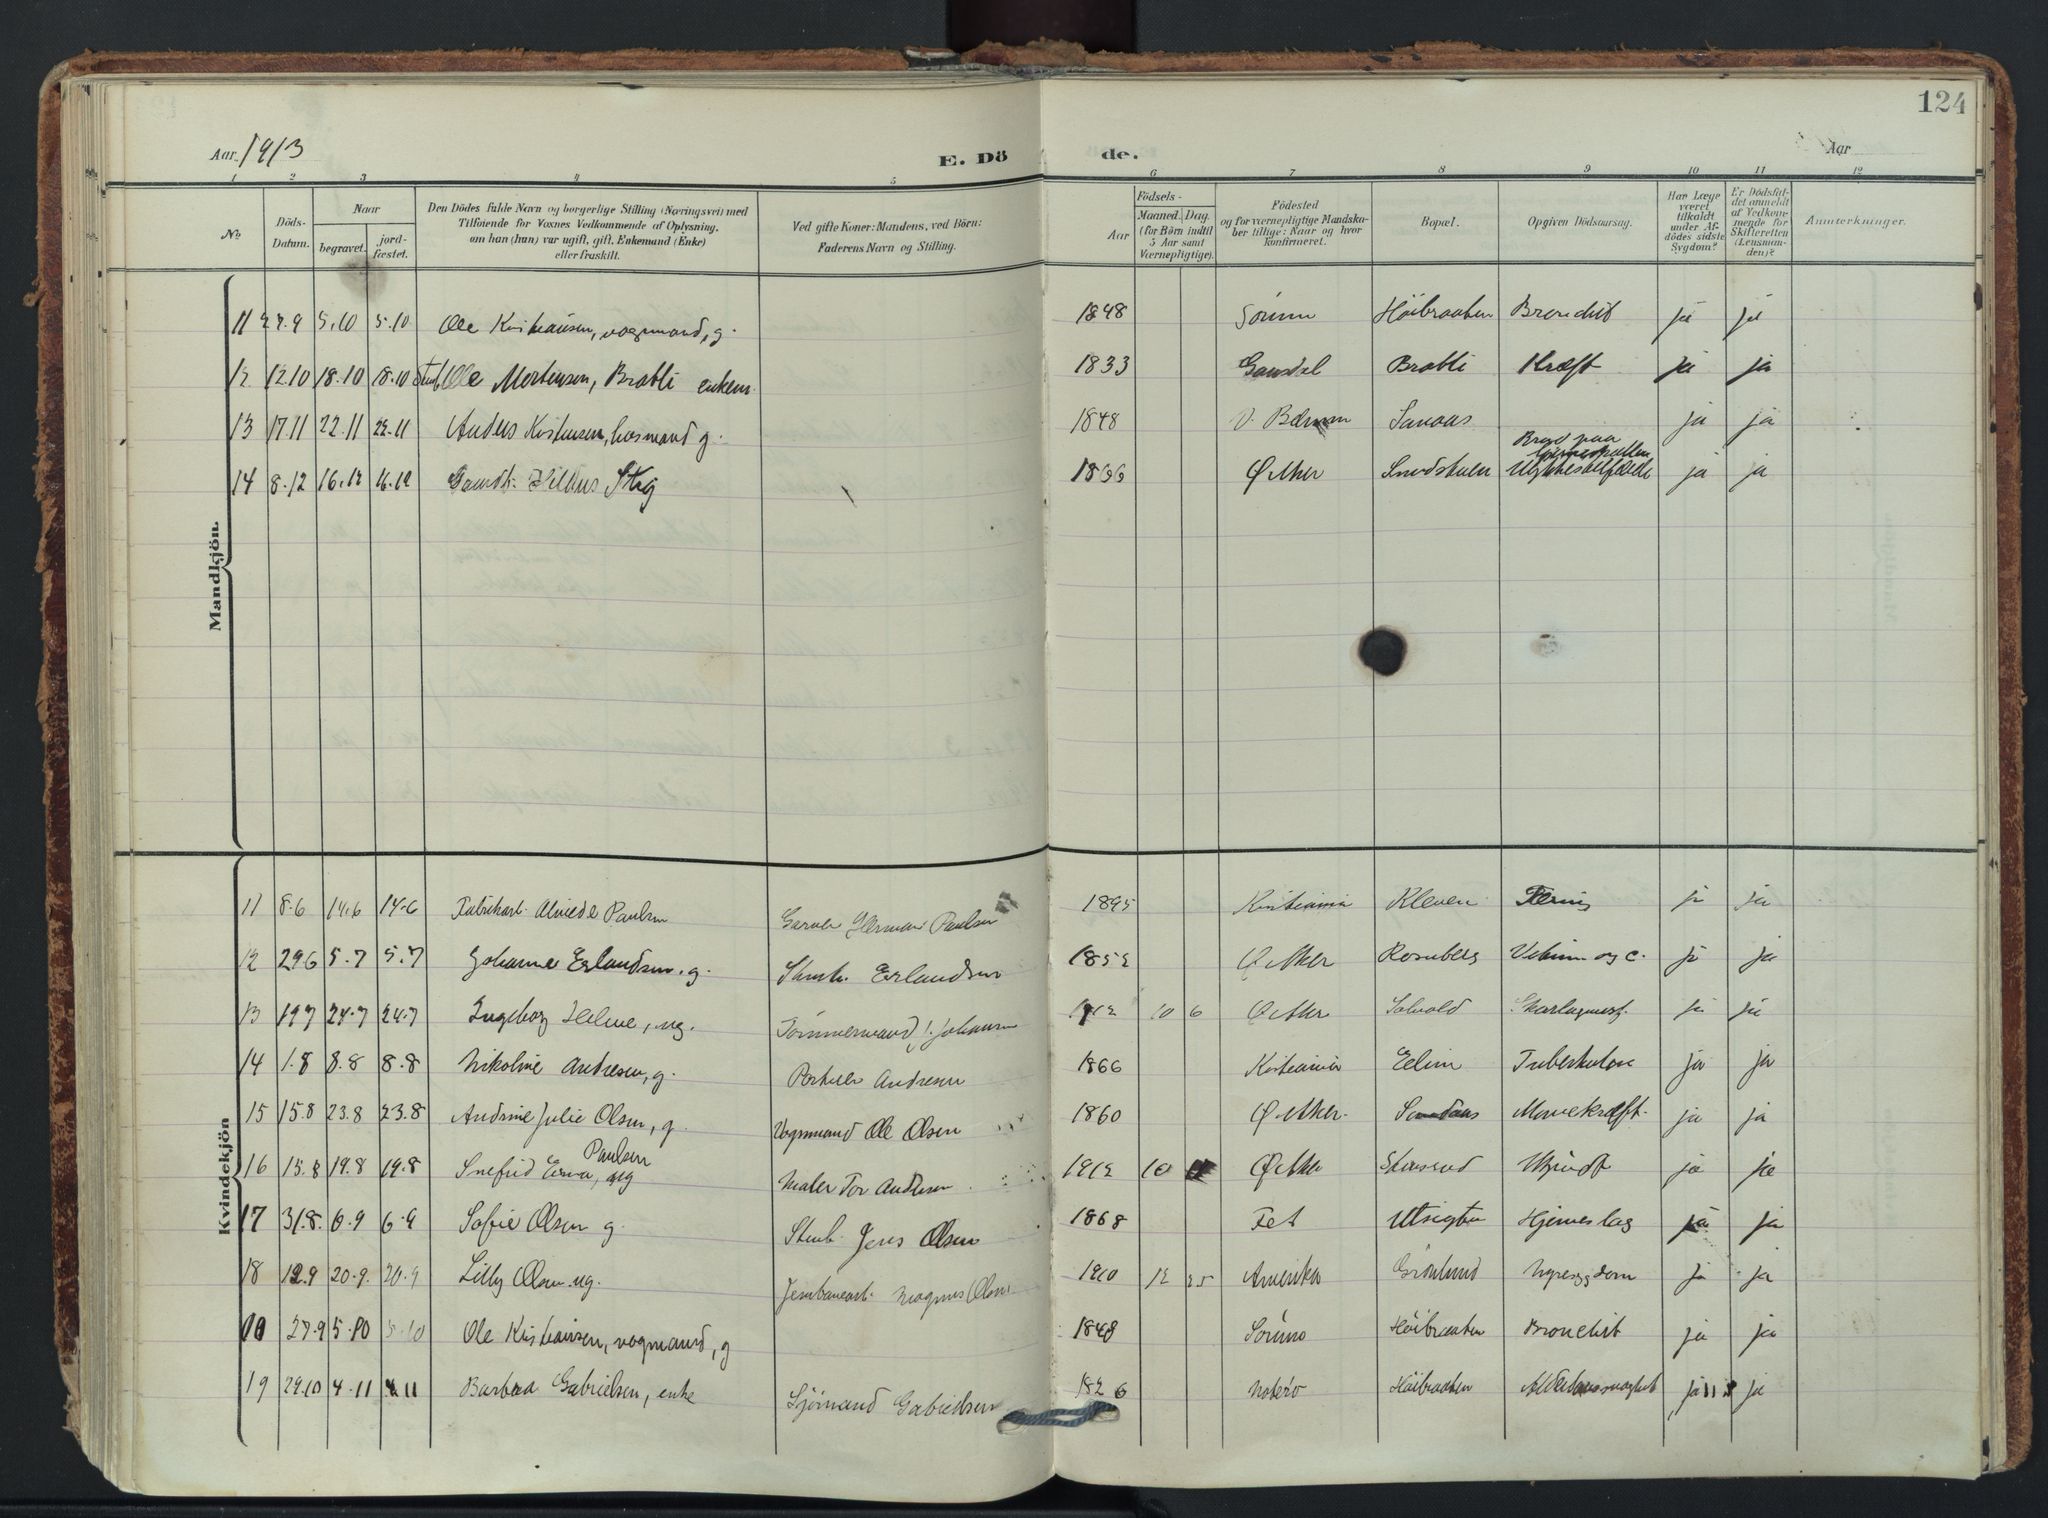 124
Aar 1913 E. Dö de. Aar
1 2 3 4 5 6 7 8 9 10 11 12
No. Döds-Datum. Naar begravet. jordfæstet. Den Dödes fulde Navn og borgerlige Stilling (Næringsvei) med Tilföiende for Voxnes Vedkommende af Oplysning, om han (hun) var ugift, gift, Enkemand (Enke) eller fraskilt. Ved gifte Koner: Mandens, ved Börn: Faderens Navn og Stilling. Födsels- Aar Maaned. Dag. (for Börn indtil 5 Aar samt Værnepligtige). Födested og for værnepligtige Mandskaber tillige: Naar og hvor konfirmeret. Bopæl. Opgiven Dödsaarsag. Har Læge været tilkaldt under Afdödes sidste Sygdom? Er Dödsfaldet anmeldt af Vedkommende for Skifteretten (Lensmanden)? Anmærkninger.
Mandkjön
11 27.9 5.10 5.10 Ole Kristiansen, vognmand, g. 1848 Sörum Höibraaten Bronchit ja ja
12 12.10 18.10 18.10 Ole Mortensen, Bratli enkem. 1833 Gausdal Bratli Kræft ja ja
13 17.11 22.11 22.11 Anders Kristiansen, husmand g. 1848 V. Bærum ja ja
14 8.12 16.12 16.12 Stig 1866 Ø. Aker Brud paa Ulykkestilfælde ja ja
Kvindekjön
11 8.6 14.6 14.6 Fabrikarb. Alvilde Paulsen Garver Herman Paulsen 1895 Kristiania Kleven ja ja
12 29.6 5.7 5.7 Johanne Erlandsen, g. Erlandsen 1852 Ø. Aker Rosenberg ja ja
13 19.7 24.7 24.7 Ingeborg Helene, ug. Tömmermand J. Johansen 1912 10 6 Ø. Aker Solvold ja ja
14 1.8 8.8 8.8 Nikoline Andresen, g. Portner Andresen 1866 Kristiania Eelim Tuberkulose ja ja
15 15.8 23.8 23.8 Andrine Julie Olsen, g. Vognmand Ole Olsen 1860 Ø. Aker Mavekræft ja ja
16 15.8 19.8 19.8 Snefrid Erna Paulsen, ug Maler Tor Andersen 1912 10 Ø. Aker ja ja
17 31.8. 6.9 6.9 Sofie Olsen g. Stenh. Jens Olsen 1868 Fet Utsigten Hjerneslag ja ja
18 12.9 20.9. 20.9 Lilly Olsen ug. Jernbanearb. Magnus Olsen 1910 12 25 Amerika Grönlund Nyresygdom ja ja
27.9 5.10 5.10 Ole Kristiansen, vognmand, g 1848 Sörum Höibraaten Bronchit ja ja
19 29.10 4.11 4.11 Barbra Gabrielsen, enke Sjömand Gabrielsen 1826 Nøterø Höibraaten Alderdomssvaghet ja ja